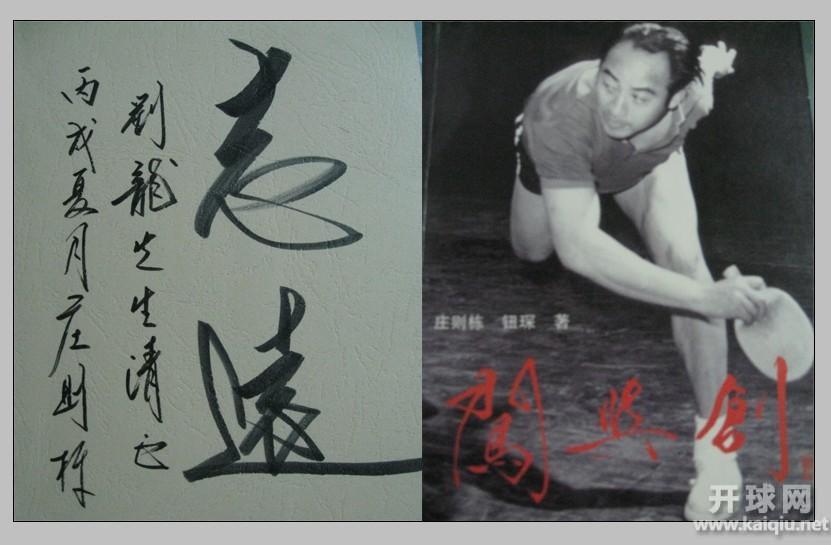 志遠
劉龍先生清正
丙戌夏月庄则栋
庄则栋 钮琛 著
闖與創
开球网
www.kaiqiu.net